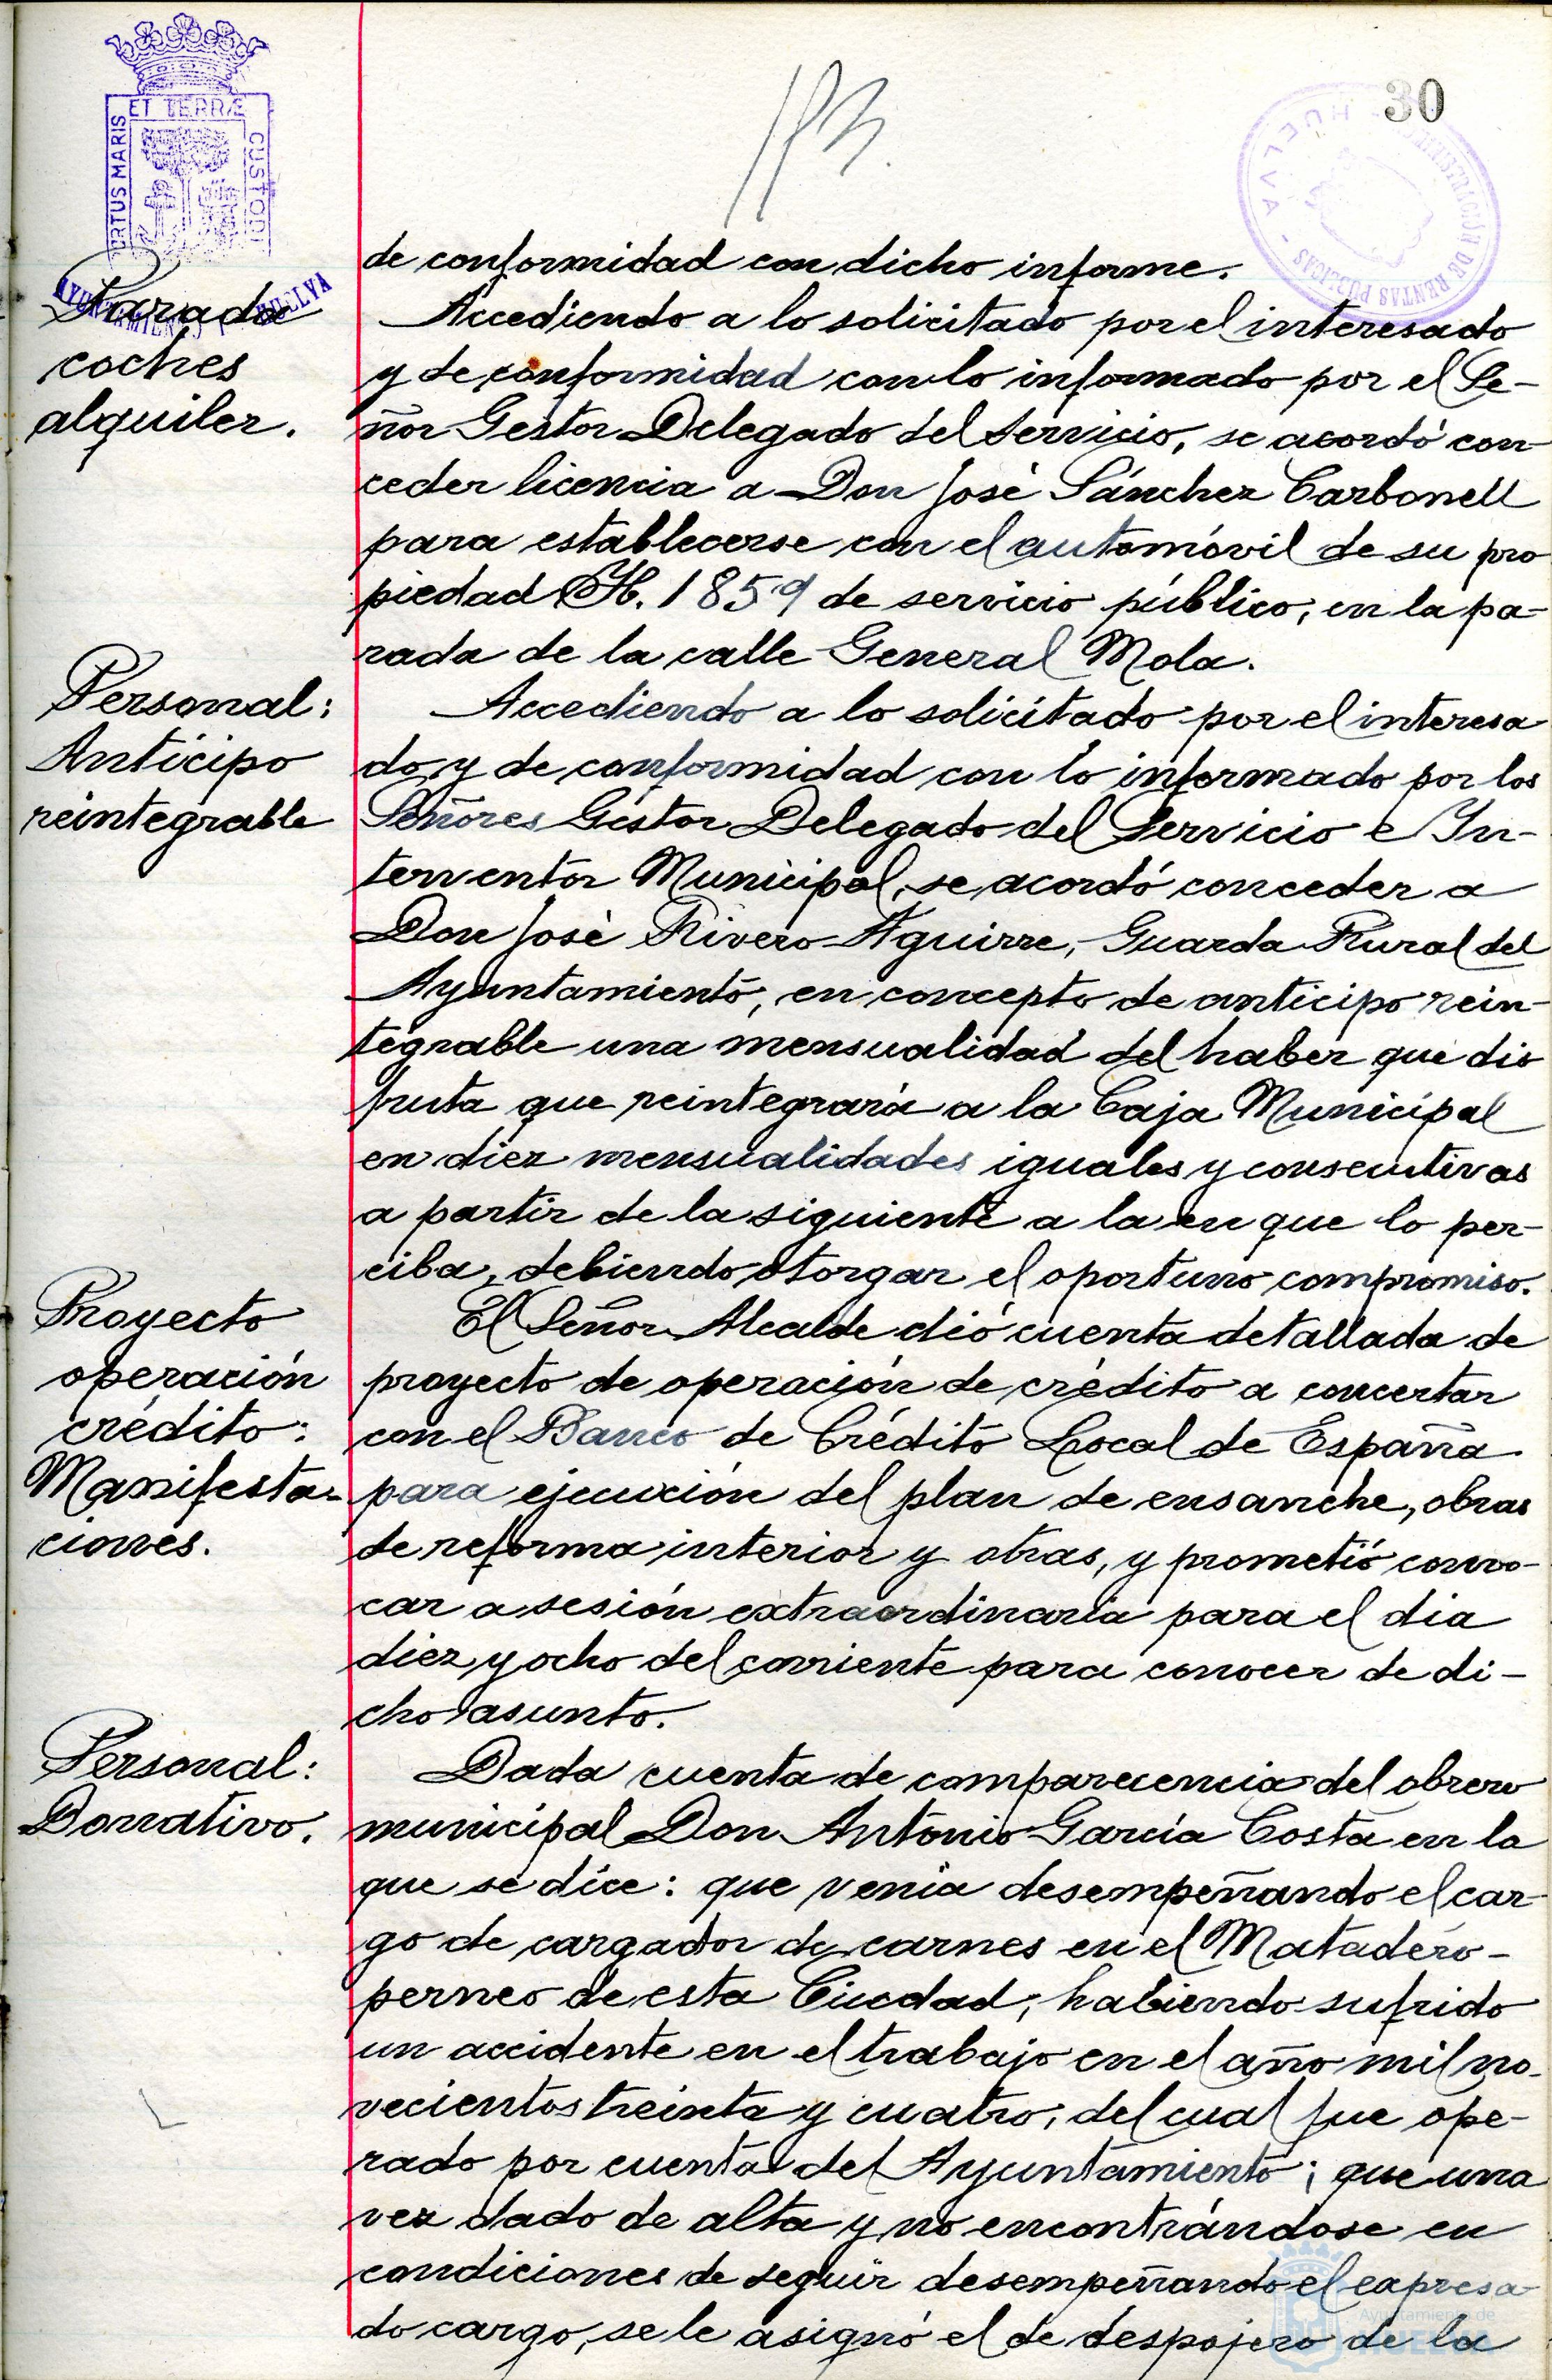 30
ET TERRÆ
PORTUS MARIS
CUSTODI
AYUNTAMIENTO HUELVA
ADMINISTRACIÓN DE RENTAS PUBLICAS - HUELVA
de conformidad con dicho informe.
Parada
coches
alquiler.
Accediendo a lo solicitado por el interesado
y de conformidad con lo informado por el Se-
ñor Gestor Delegado del Servicio, se acordó con-
ceder licencia a Don José Sánchez Carbonell
para establecerse con el automóvil de su pro
piedad H. 1859 de servicio público, en la pa-
rada de la calle General Mola.
Personal:
Anticipo
reintegrable
Accediendo a lo solicitado por el interesa
do y de conformidad con lo informado por los
Señores Gestor Delegado del Servicio e In-
terventor Municipal, se acordó conceder a
Don José Rivero Aguirre, Guarda Rural del
Ayuntamiento, en concepto de anticipo rein-
tegrable una mensualidad del haber que dis
fruta que reintegrará a la Caja Municipal
en diez mensualidades iguales y consecutivas
a partir de la siguiente a la en que lo per-
ciba, debiendo otorgar el oportuno compromiso.
Proyecto
operación
crédito:
Manifesta-
ciones.
El Señor Alcalde dió cuenta detallada de
proyecto de operación de crédito a concertar
con el Banco de Crédito Local de España
para ejecución del plan de ensanche, obras
de reforma interior y otras, y prometió convo-
car a sesión extraordinaria para el dia
diez y ocho del corriente para conocer de di-
cho asunto.
Personal:
Donativo.
Dada cuenta de comparecencia del obrero
municipal Don Antonio García Costa en la
que se dice: que venía desempeñando el car-
go de cargador de carnes en el Matadero-
perneo de esta Ciudad, habiendo sufrido
un accidente en el trabajo en el año mil no-
vecientos treinta y cuatro, del cual fue ope-
rado por cuenta del Ayuntamiento; que una
vez dado de alta y no encontrándose en
condiciones de seguir desempeñando el expresa-
do cargo, se le asignó el de despojero de la
Ayuntamiento de
HUELVA